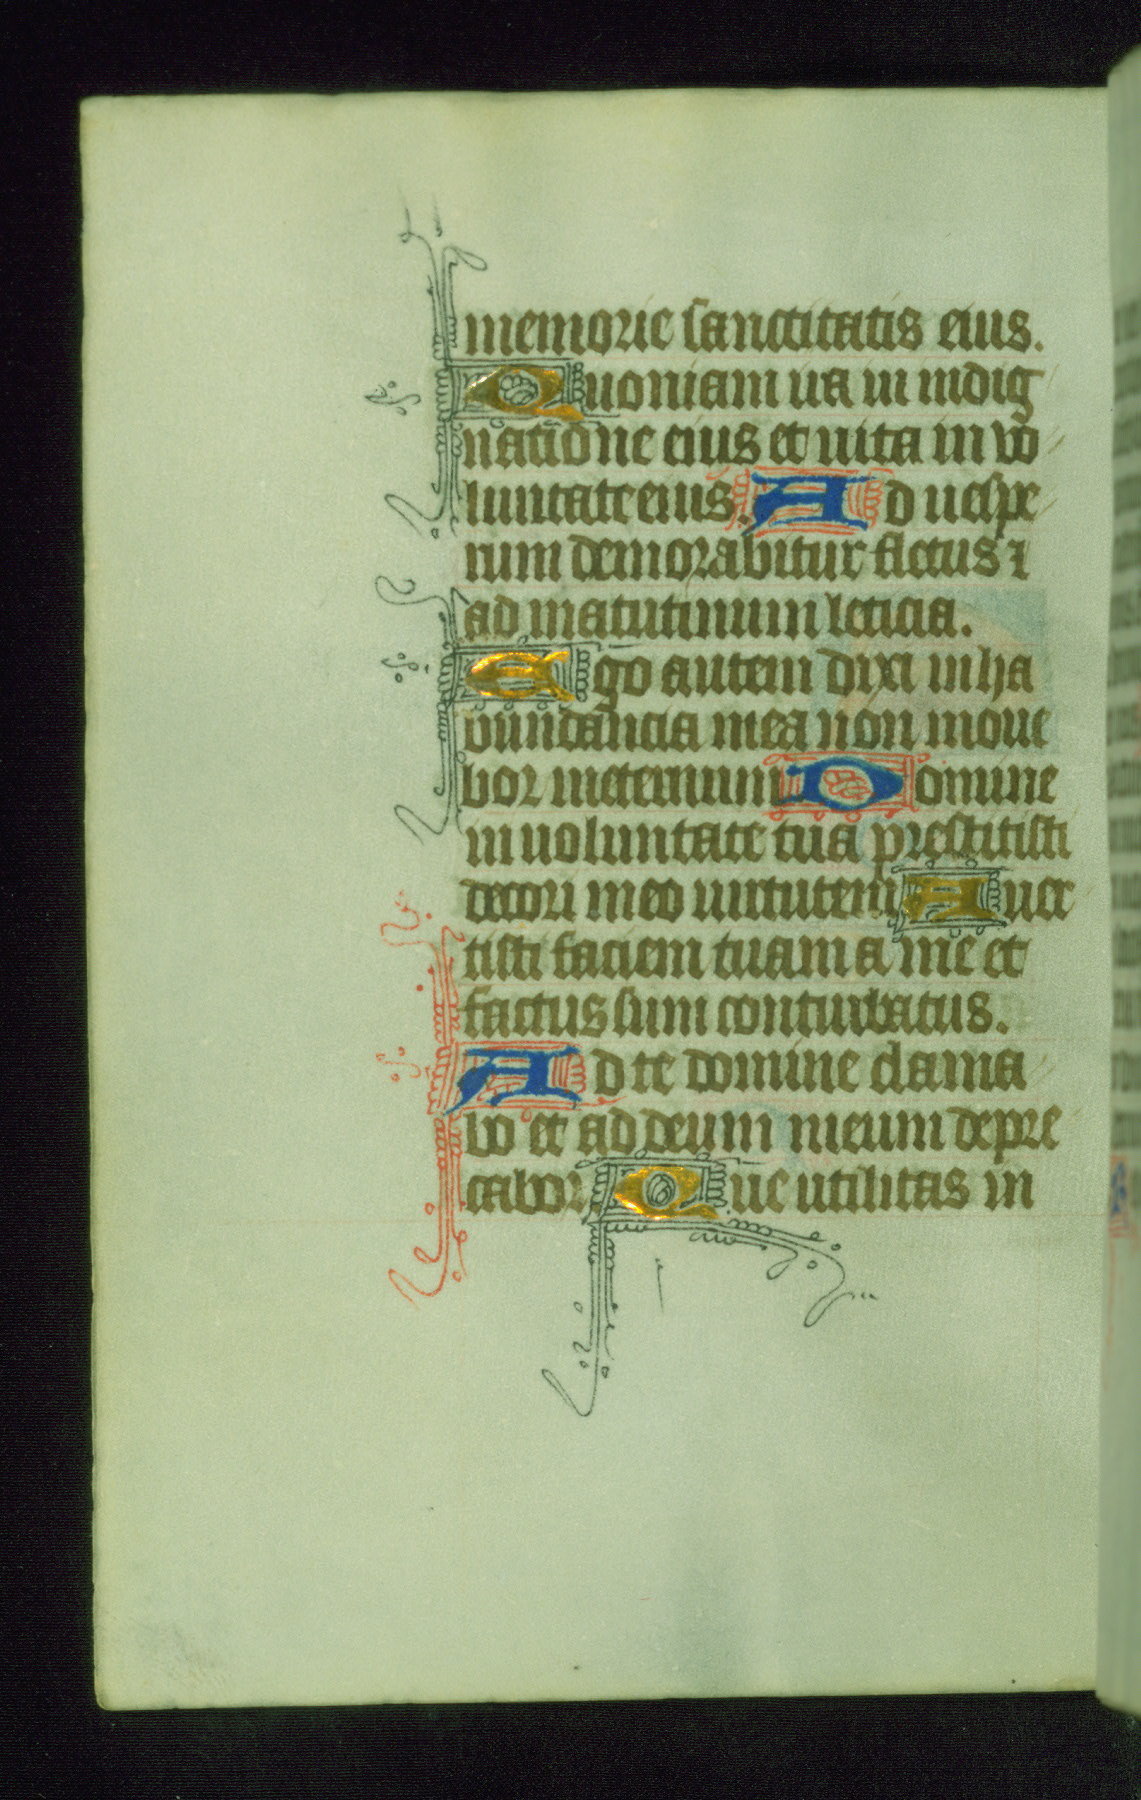 memorie sanctitatis eius.
Quoniam ira in indig
natione eius et uita in vo
luntate eius. Ad uespe
rum demorabitur fletus ⁊
ad matutinum leticia.
Ego autem dixi in ha
bundancia mea non moue
bor in eternum Domine
in uoluntate tua prestitisti
decori meo uirtutem Auer
tisti faciem tuam a me et
factus sum conturbatus.
Ad te domine clama
bo et ad deum meum depre
cabor Que utilitas in